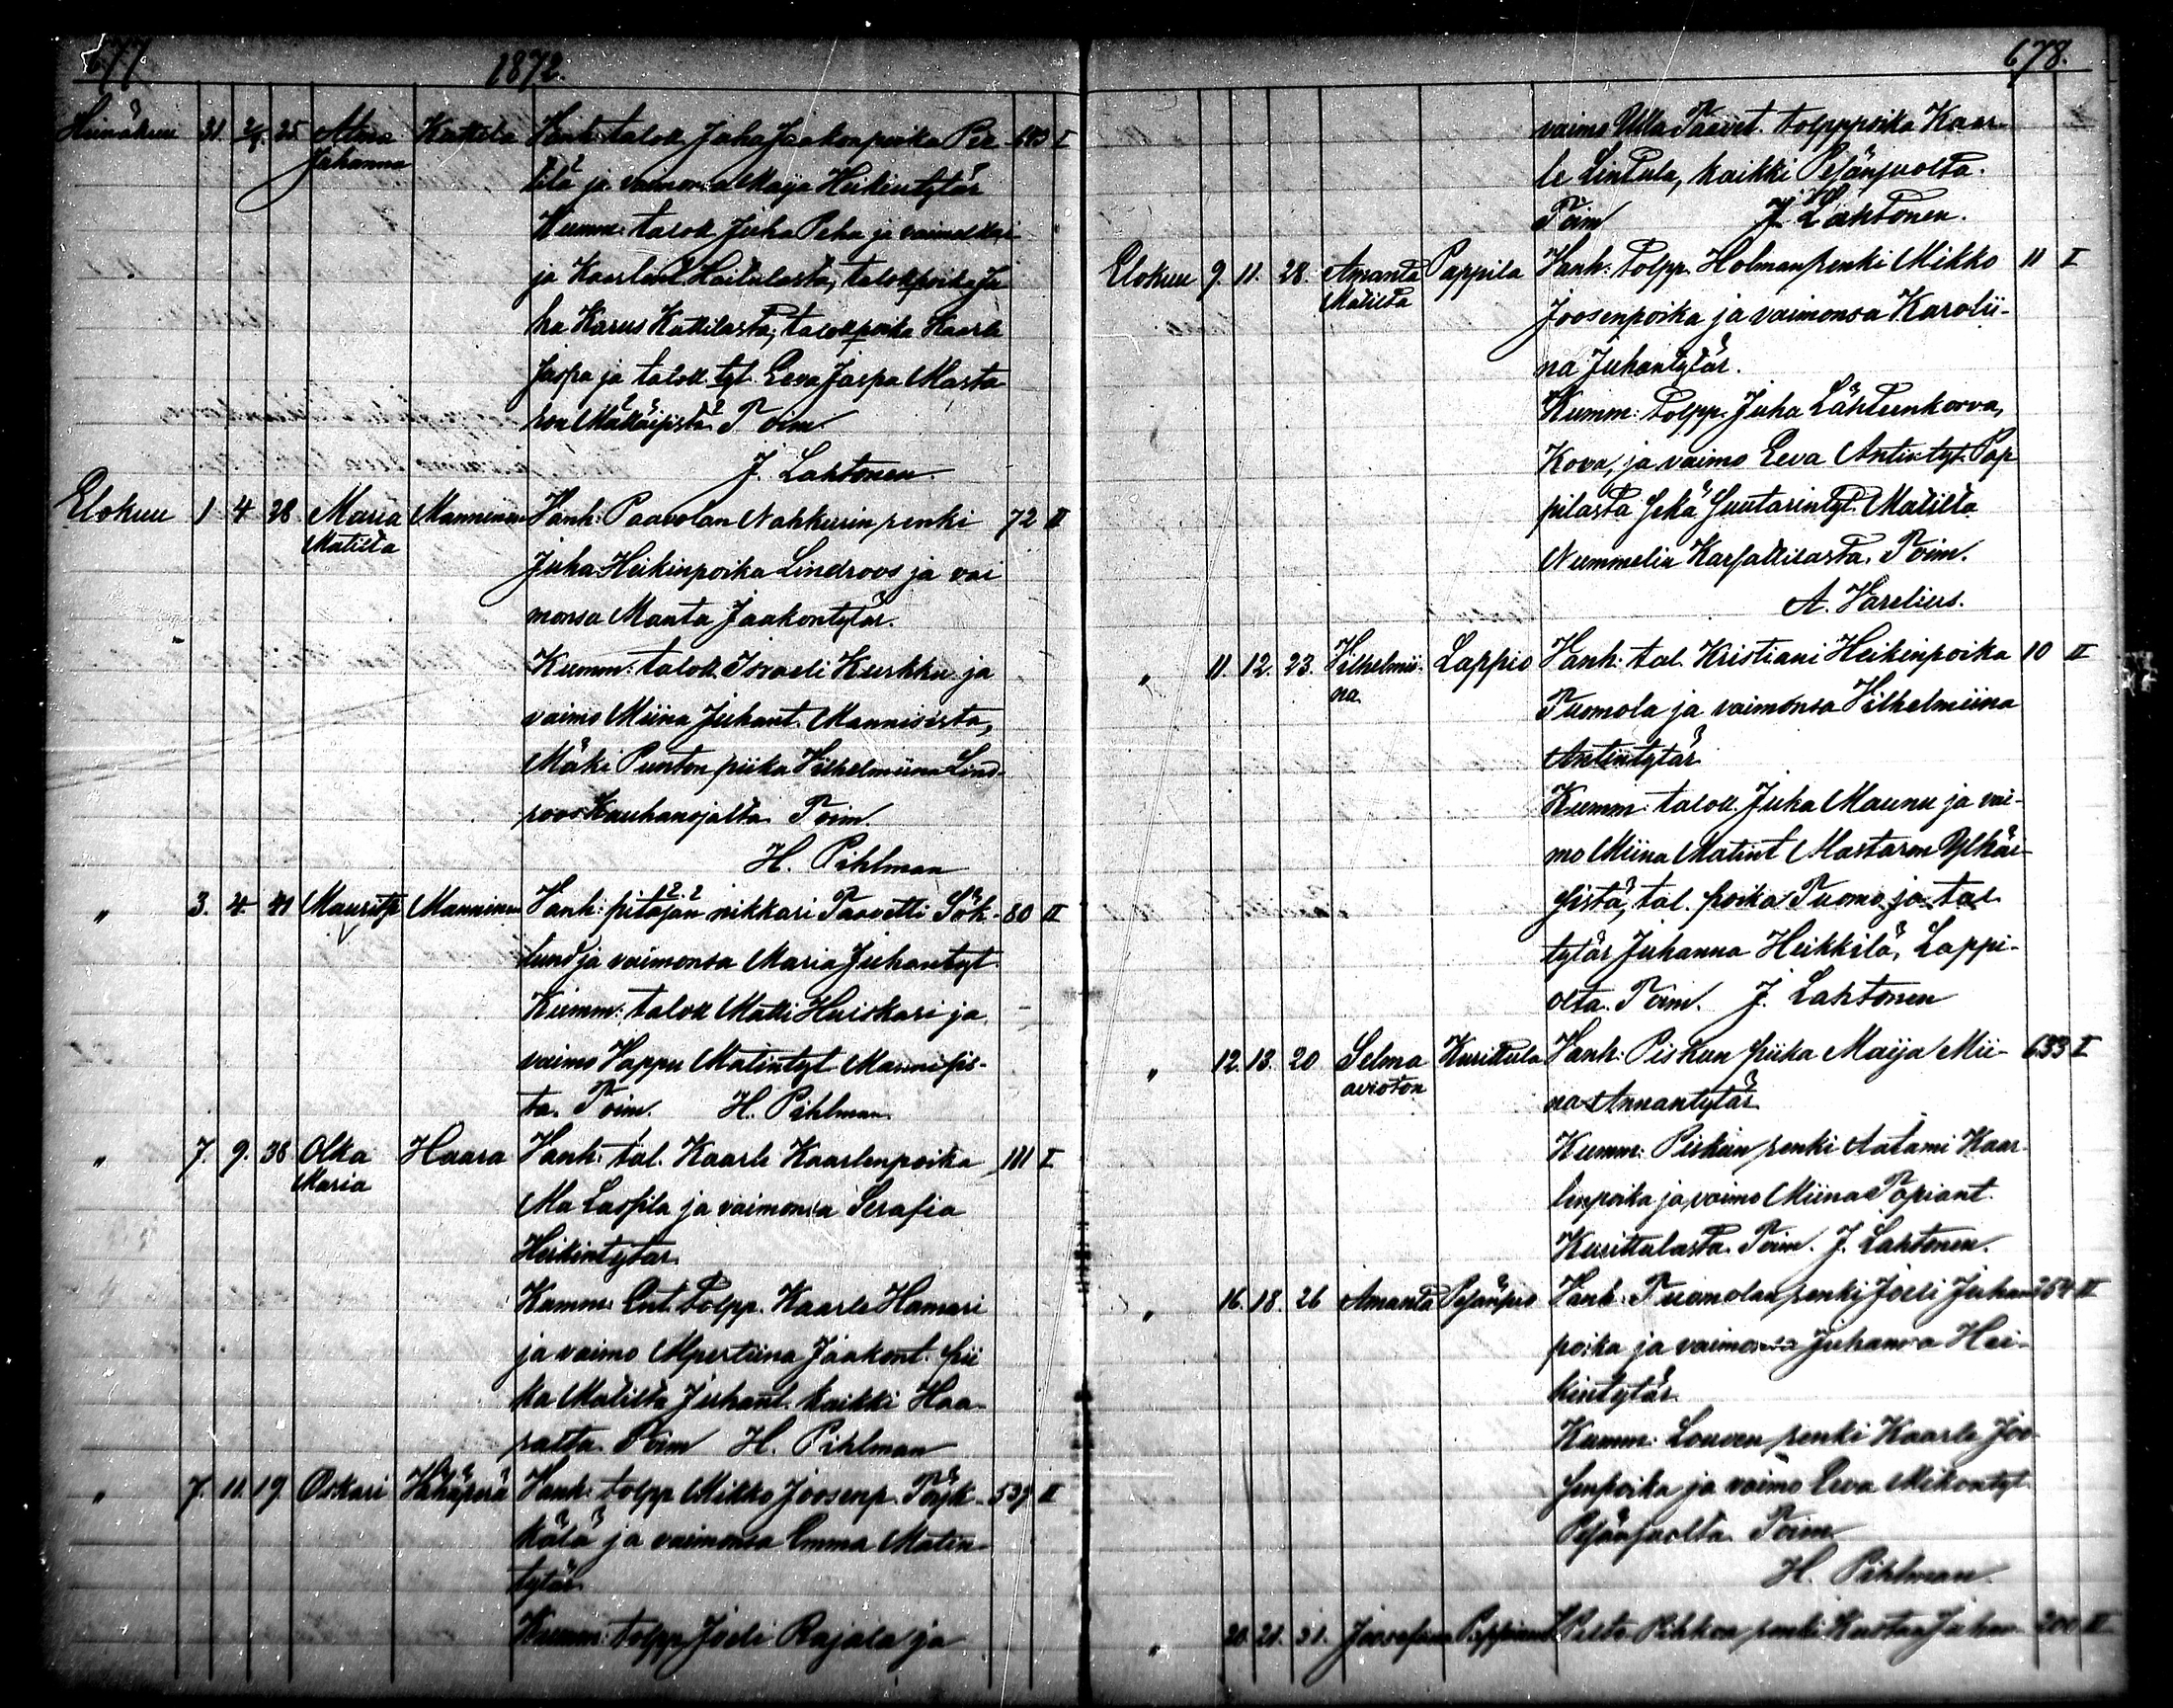 677
1872.
Heinäkuu 31. 25 Alma Kattila Vanh: talok. Juha Jaakonpoika Per- I
Johanna
tilä ja vaimonsa Maija Heikintytär
Kumm: talok Juha Peha ja vaimo
ja Kaarle Haitulasta, talok poika Ju
ha Karus Kattilasta, talok poika Kaarle
Jaspa ja talok tyt. Eeva Jaspa Masta
ron Mälläisistä. Toim.
J. Lahtonen.
Elokuu 1 4 28 Maria Manninen Vanh: Paavolan Nahkurin renki 72 II
Matilta
Juha Heikinpoika Lindroos ja vai
monsa Manta Jaakontytär.
Kumm: talok. Israeli Kurkku ja
vaimo Miina Juhant. Mannisista,
Mäki Punton piika Vilhelmiina Lind-
roos Kauhanojalta. Toim.
H. Pihlman
„ 3. 4. 41 Mauritz Manninen Vanh: pitäjän nikkari Taavetti Sök- 80 II
lund ja vaimonsa Maria Juhantyt.
Kumm: talok Matti Huiskari ja
vaimo Vappu Matintyt Mannisis-
ta. Toim. H. Pihlman.
„ 7. 9. 38 Olka Haara Vanh: tal. Kaarle Kaarlenpoika 181 I
Maria
Ala Lassila ja vaimonsa Serafia
Heikintytär
Kumm: Ent. Tolpp. Kaarle Hamari
ja vaimo Alpertiina Jaakont. pii
ka Matilta Juhant. kaikki Haa-
ralta. Toim H. Pihlman
„ 7. 11. 19 Oskari Vähäperä Vanh: tolpp Mikko Joosenp. Törk- 537 II
kälä ja vaimonsa Emma Matin-
tytär.
Kumm: tolpp Joeli Rajala ja
678.
vaimo Ulla Taavet. tolpppoika Kaar-
le Lintula, kaikki Pesänsuolta.
Toim J. Lahtonen.
Elokuu 9. 11. 28. Amanta Pappila Vanh: Tolpp. Holman renki Mikko 11 I
Matilta
Joosenpoika ja vaimonsa Karolii-
na Juhantytär.
Kumm: Tolpp. Juha Lähteenkorva,
Kova, ja vaimo Eeva Antin tyt. Pap
pilasta sekä Suutarintyt. Matilta
Nummelin Karsattilasta. Toim.
A. Varelius.
„ 11. 12. 23. Vilhelmii- Lappio Vanh: tal. Kristiani Heikinpoika 10 II
na
Tuomola ja vaimonsa Vilhelmiina
Antintytär
Kumm: talok. Juha Maunu ja vai-
mo Miina Matint Mastaron Ylhäi-
sistä, tal. poika Tuomo ja tal.
tytär Juhanna Heikkilä, Lappi-
olta. Toim. J. Lahtonen
„ 12. 13. 20 Selma Kurittula Vanh: Piskun piika Maija Mii- 633 I
avioton
na Annantytär
Kumm: Piskun renki Aatami Kaar-
lenpoika ja vaimo Miina Topiant.
Kurittulasta. Toim. J. Lahtonen.
„ 16. 18. 26 Amanta Vanh: Tuomolan renki Joeli Juhan 254 II
poika ja vaimonsa Juhanna Hei-
kintytär.
Kumm: Louven renki Kaarle Joo-
senpoika ja vaimo Eeva Mikontyt.
Pesänsuolta. Toim
H. Pihlman
„ 20. 21. 31. Joosefiina renki Kustaa Juhan 200 II